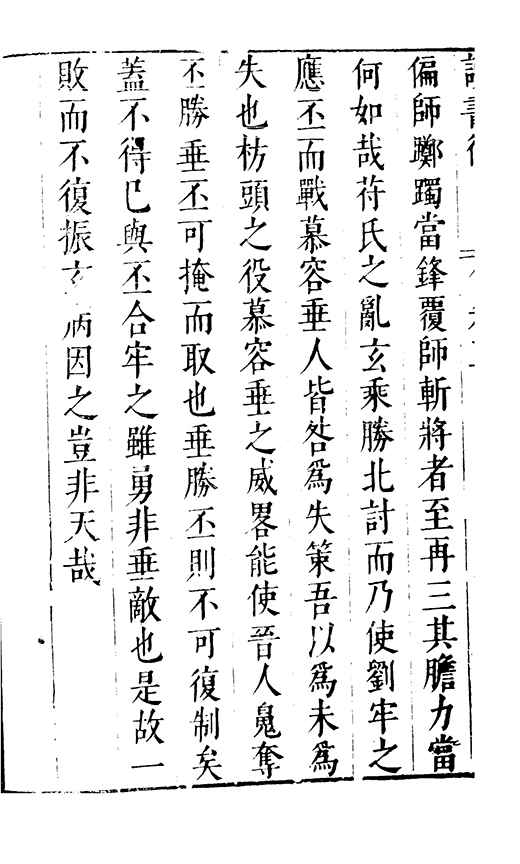 讀書後
偏師躑躅當鋒覆師斬將者至再三其膽力當
何如哉苻氏之亂玄乘勝北討而乃使劉牢之
應丕而戰慕容垂人皆咎爲失策吾以爲未爲
失也枋頭之役慕容垂之威畧能使晉人䰟奪
丕勝垂丕可掩而取也垂勝丕則不可復制矣
蓋不得已與丕合牢之雖勇非垂敵也是故一
敗而不復振玄病因之豈非天哉